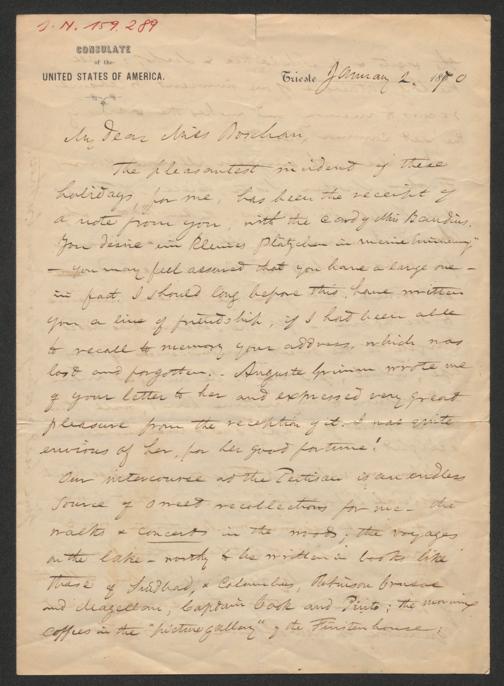 J. N. 159.289
CONSULATE
of the
UNITED STATES OF AMERICA.
Trieste January 2. 1870
My Dear Miss
The pleasantest incident of these
holidays, for me, has been the receipt of
a note from you, with the card of Miss Baudius.
You desire "ein kleines Plätzchen in meine Erinnerung"
— you may feel assured that you have a large one —
in fact, I should long before this, have written
you a line of friendship, if I had been able
to recall to memory your address, which was
lost and forgotten. - Auguste Grimm wrote me
of your letter to her and expressed very great
pleasure from the reception of it. I was quite
envious of her, for her good fortune!
Our intercourse at the is an endless
source of sweet recollections for me - the
walks & concerts in the woods; the voyages
on the lake - worthy to be written in books like
those of Sindbad, & Columbus, Robinson Crusoe
and Magellan, Captain Cook and Pinto; the morning
coffees in the "picture gallery" of the Fürstenhouse;